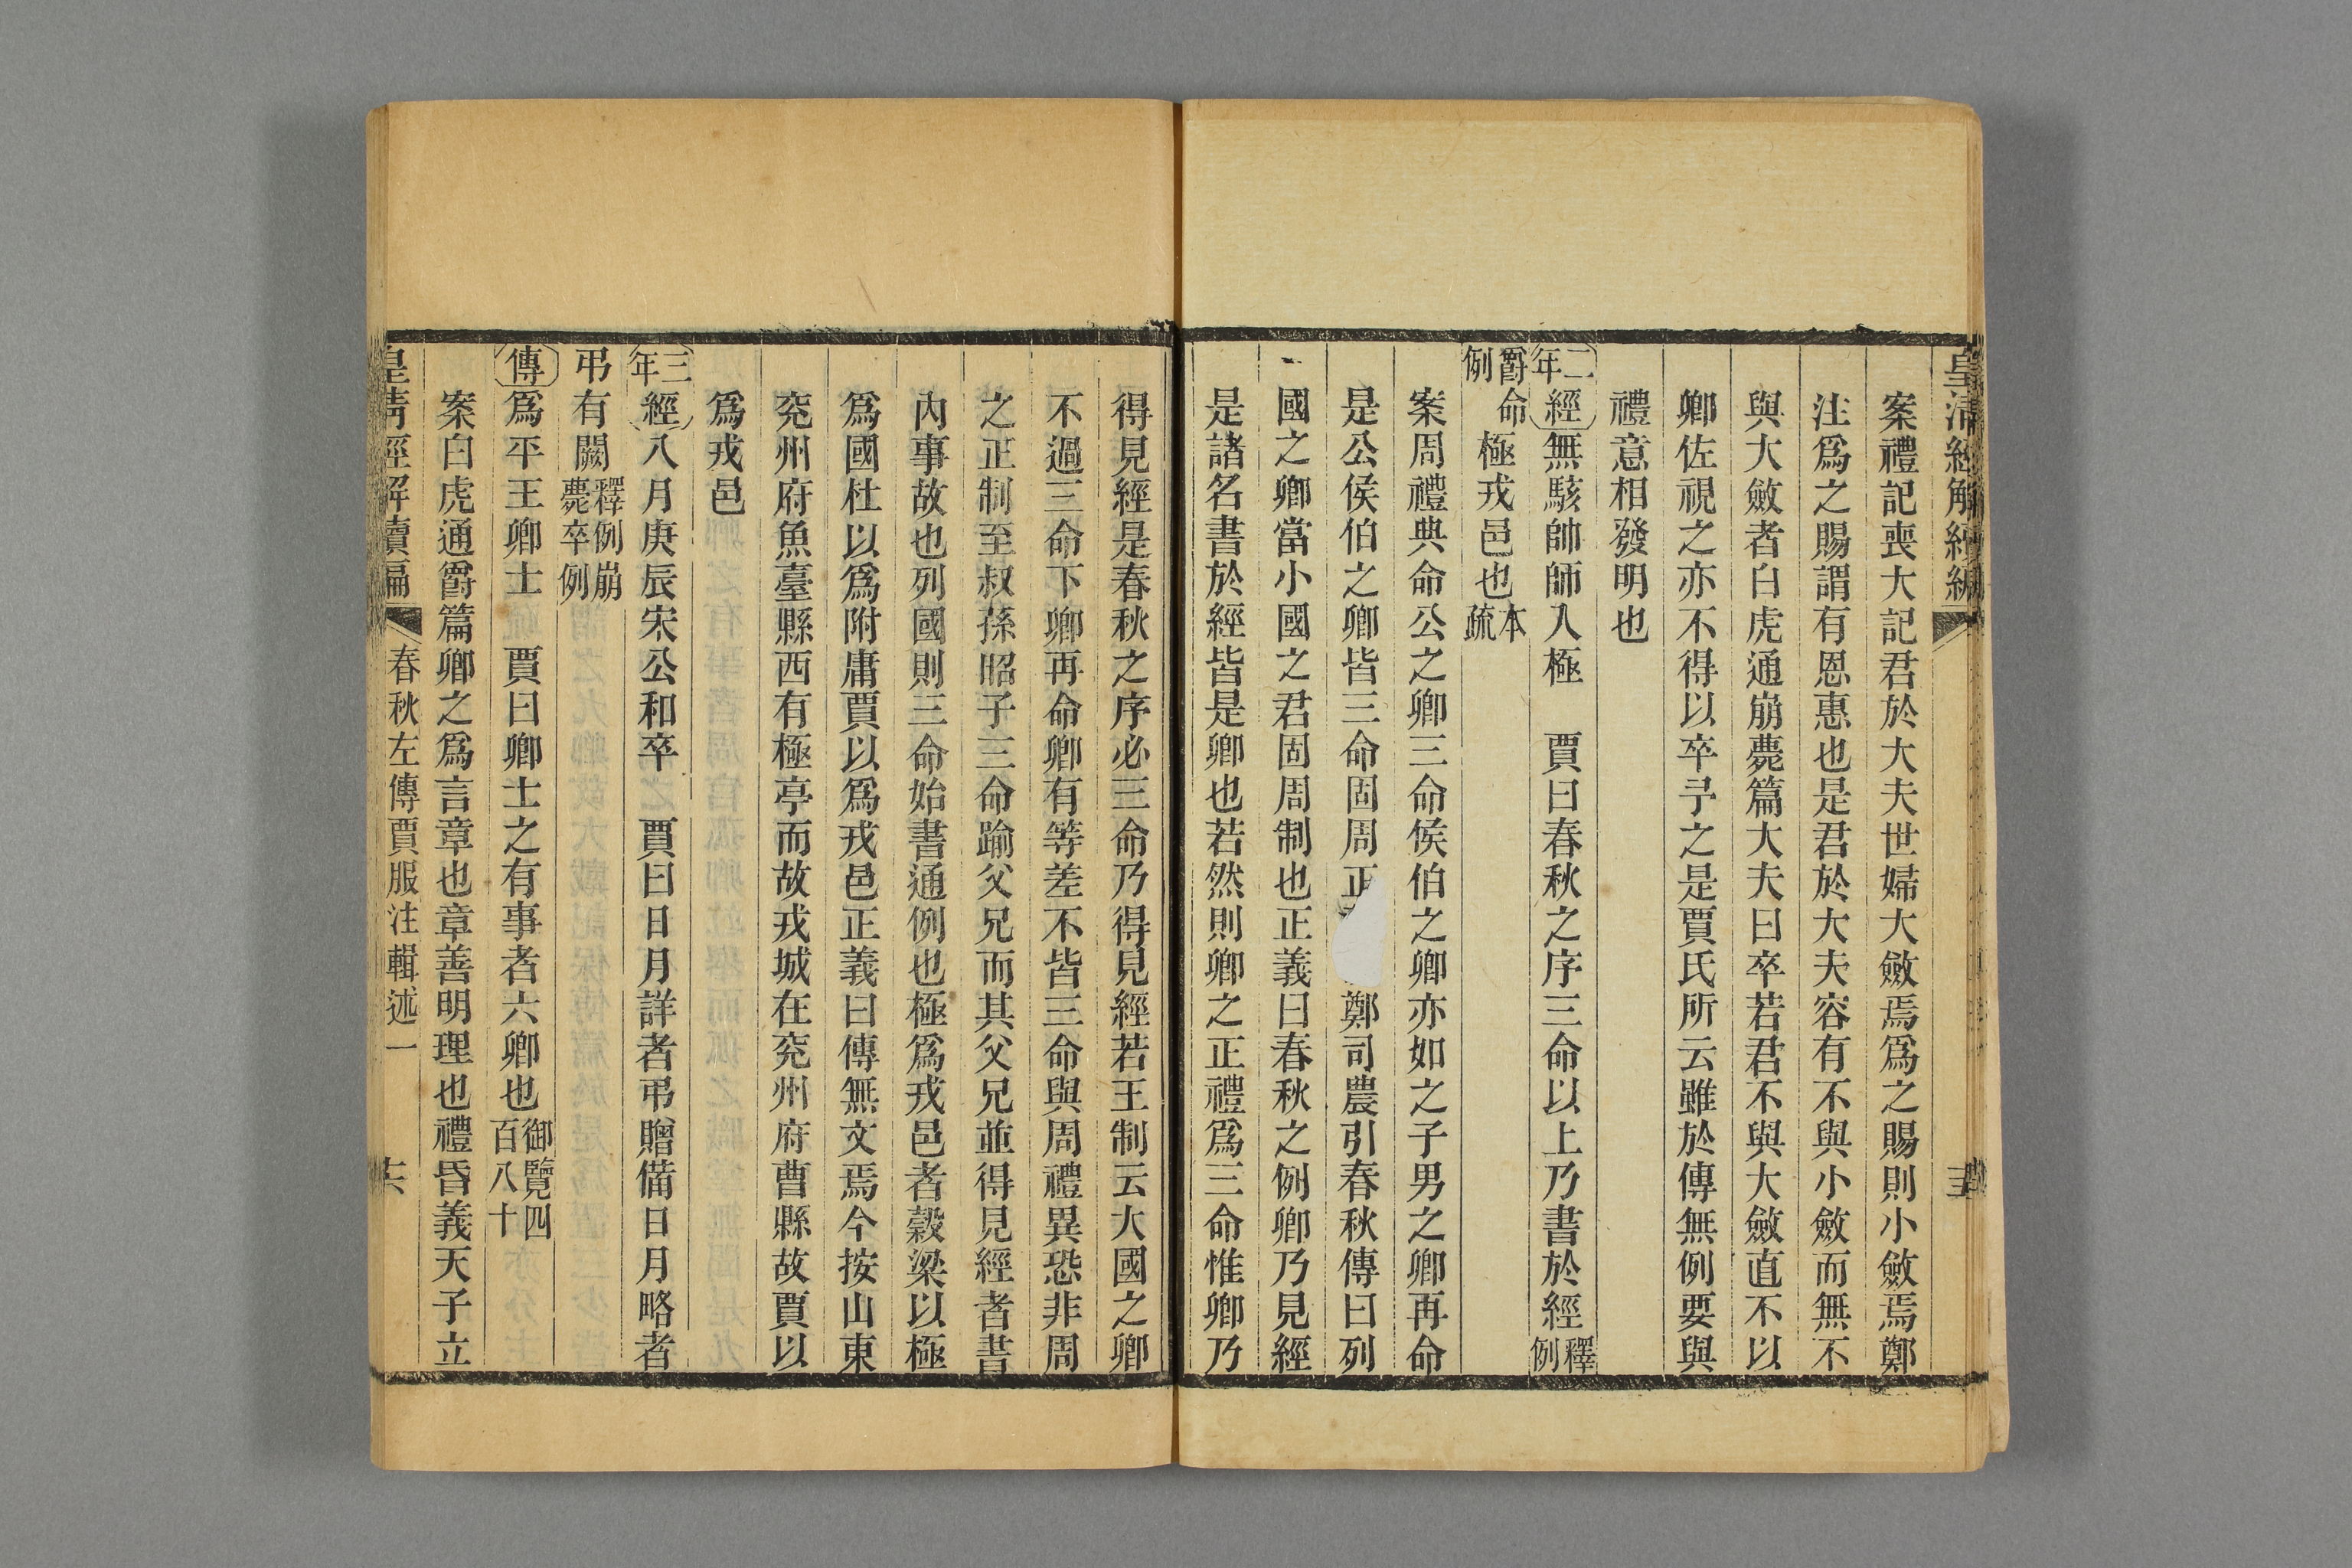 皇清經解續編
案禮記喪大記君於大夫世婦大斂焉爲之賜則小斂焉鄭
注爲之賜謂有恩惠也是君於大夫容有不與小斂而無不
與大斂者白虎通崩薨篇大夫曰卒若君不與大斂直不以
卿佐視之亦不得以卒予之是賈氏所云雖於傳無例要與
禮意相發明也
二年經無駭帥師入極　賈曰春秋之序三命以上乃書於經釋例
爵命例　極戎邑也本疏
案周禮典命公之卿三命侯伯之卿亦如之子男之卿再命
是公侯伯之卿皆三命固周正鄭司農引春秋傳曰列
國之卿當小國之君固周制也正義曰春秋之例卿乃見經
是諸名書於經皆是卿也若然則卿之正禮爲三命惟卿乃
得見經是春秋之序必三命乃得見經若王制云大國之卿
不過三命下卿再命卿有等差不皆三命與周禮異恐非周
之正制至叔孫昭子三命踰父兄而其父兄並得見經者書
內事故也列國則三命始書通例也極爲戎邑者穀梁以極
爲國杜以爲附庸賈以爲戎邑正義曰傳無文焉今按山東
兗州府魚臺縣西有極亭而故戎城在兗州府曹縣故賈以
爲戎邑
三年經八月庚辰宋公和卒　賈曰日月詳者弔贈備日月略者
弔有闕釋例崩薨卒例
傳爲平王卿士　賈曰卿士之有事者六卿也御覽四百八十
案白虎通爵篇卿之爲言章也章善明理也禮昏義天子立
皇清經解續編　春秋左傳賈服注輯述一